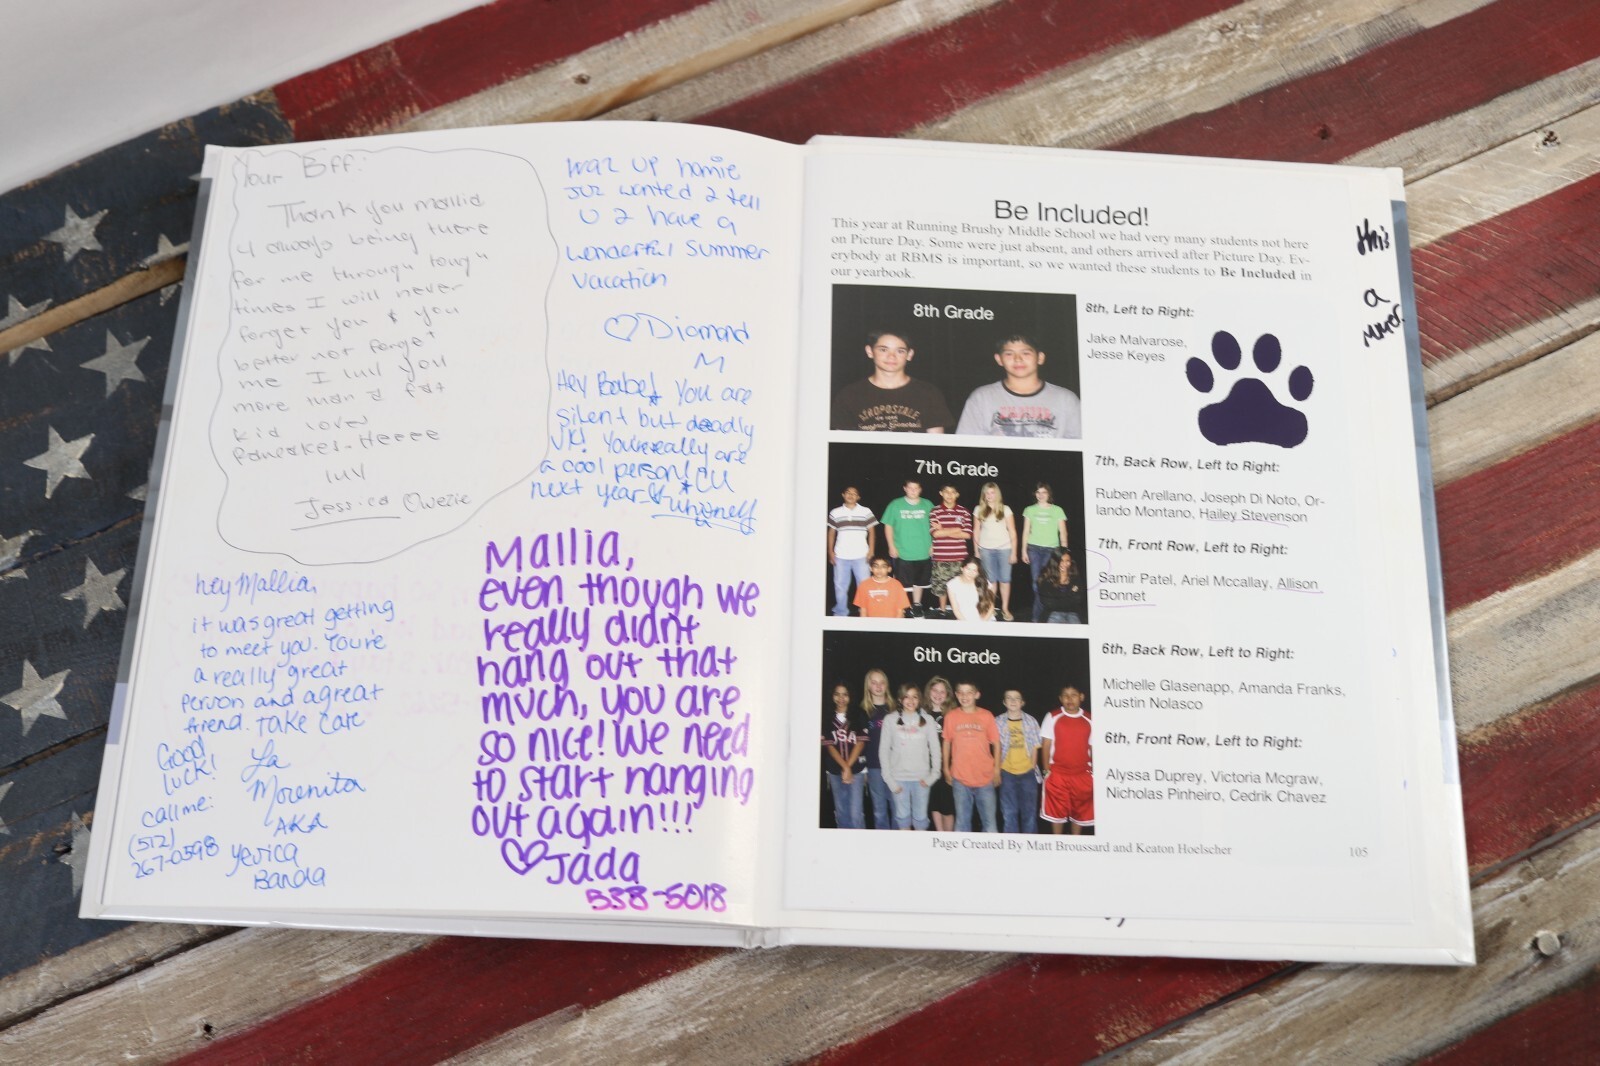 Your Bff:
Thank you mallia
4 always being there
for me through toug
times I will never
forget you & you
better not forget
me I luv you
more than a fat
kid loves
pancakes-Heeee
luv
Jessica
waz up homie
juz wanted 2 tell
U 2 have a
wonderful summer
vacation
Diamond
M
Hey Babe! You are
silent but deadly
JK! You really are
a cool person! CU
next year
hey Mallia,
it was great getting
to meet you. You're
a really great
person and a great
friend. Take care
Good
luck!
call me:
(512)
267-0598
La
Morenita
AKA
Yerica
Banda
Mallia,
even though we
really didn't
hang out that
much, you are
so nice! We need
to start hanging
out again!!!
Jada
538-5018
Be Included!
This year at Running Brushy Middle School we had very many students not here
on Picture Day. Some were just absent, and others arrived after Picture Day. Ev-
erybody at RBMS is important, so we wanted these students to Be Included in
our yearbook.
8th Grade
AEROPOSTALE
8th, Left to Right:
Jake Malvarose,
Jesse Keyes
7th Grade
7th, Back Row, Left to Right:
Ruben Arellano, Joseph Di Noto, Or-
lando Montano, Hailey Stevenson
7th, Front Row, Left to Right:
Samir Patel, Ariel Mccallay, Allison
Bonnet
6th Grade
USA
6th, Back Row, Left to Right:
Michelle Glasenapp, Amanda Franks,
Austin Nolasco
6th, Front Row, Left to Right:
Alyssa Duprey, Victoria Mcgraw,
Nicholas Pinheiro, Cedrik Chavez
Page Created By Matt Broussard and Keaton Hoelscher
105
this
a
mmer.